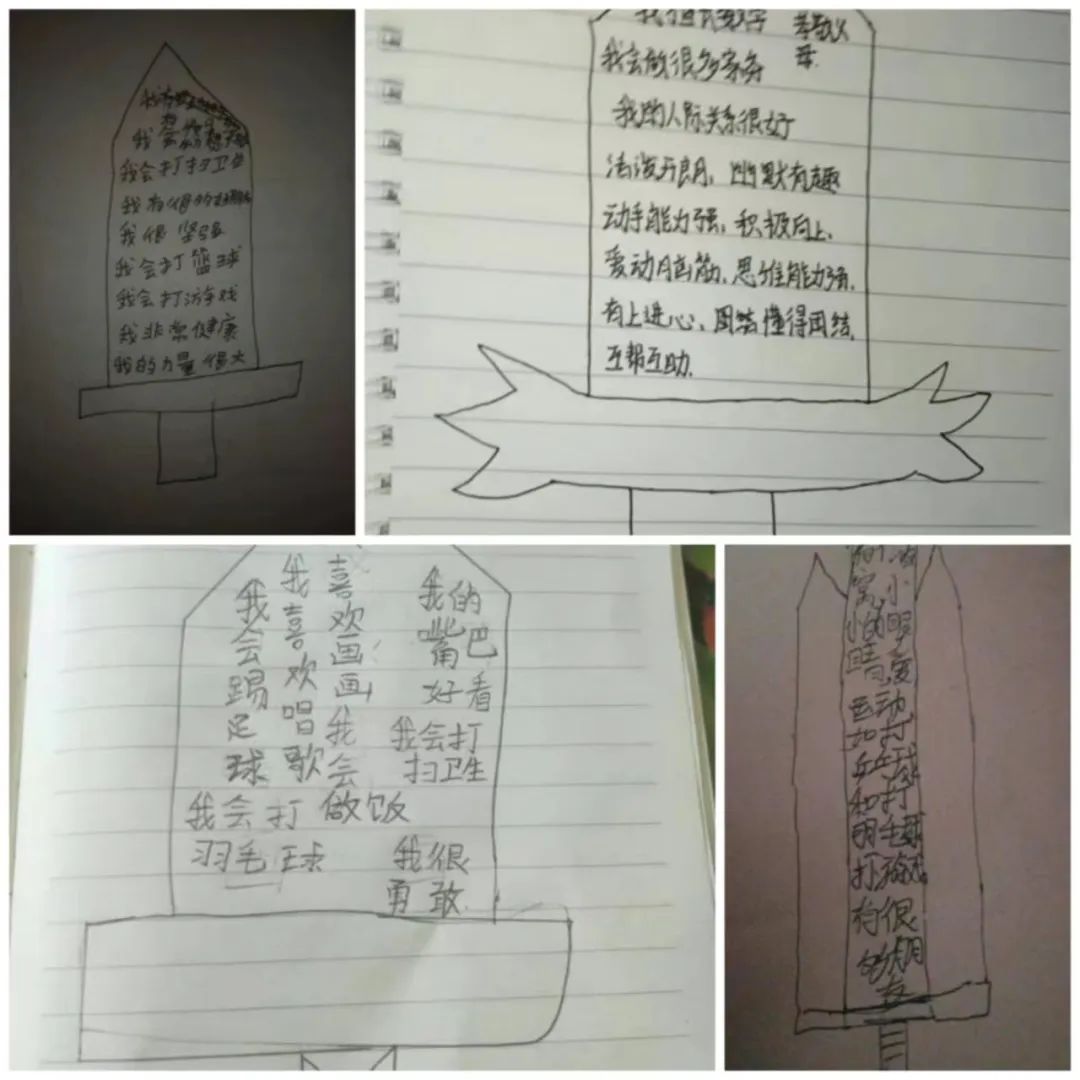 我会打扫卫生
我有很多好朋友
我很坚强
我会打篮球
我会打游戏
我非常健康
我的力量很大
我会做很多家务
我的人际关系很好
活泼开朗，幽默有趣
动手能力强，积极向上，
爱动脑筋，思维能力强，
有上进心，团结懂得团结，
互帮互助.
我会踢足球
我喜欢唱歌
喜欢画画
我会做饭
我的嘴巴好看
我会打扫卫生
我会打
羽毛球
我很
勇敢.
小
眼
睛 爱
运动
如打
乒乓球
和打
羽毛球
打游戏
有很
朋
友